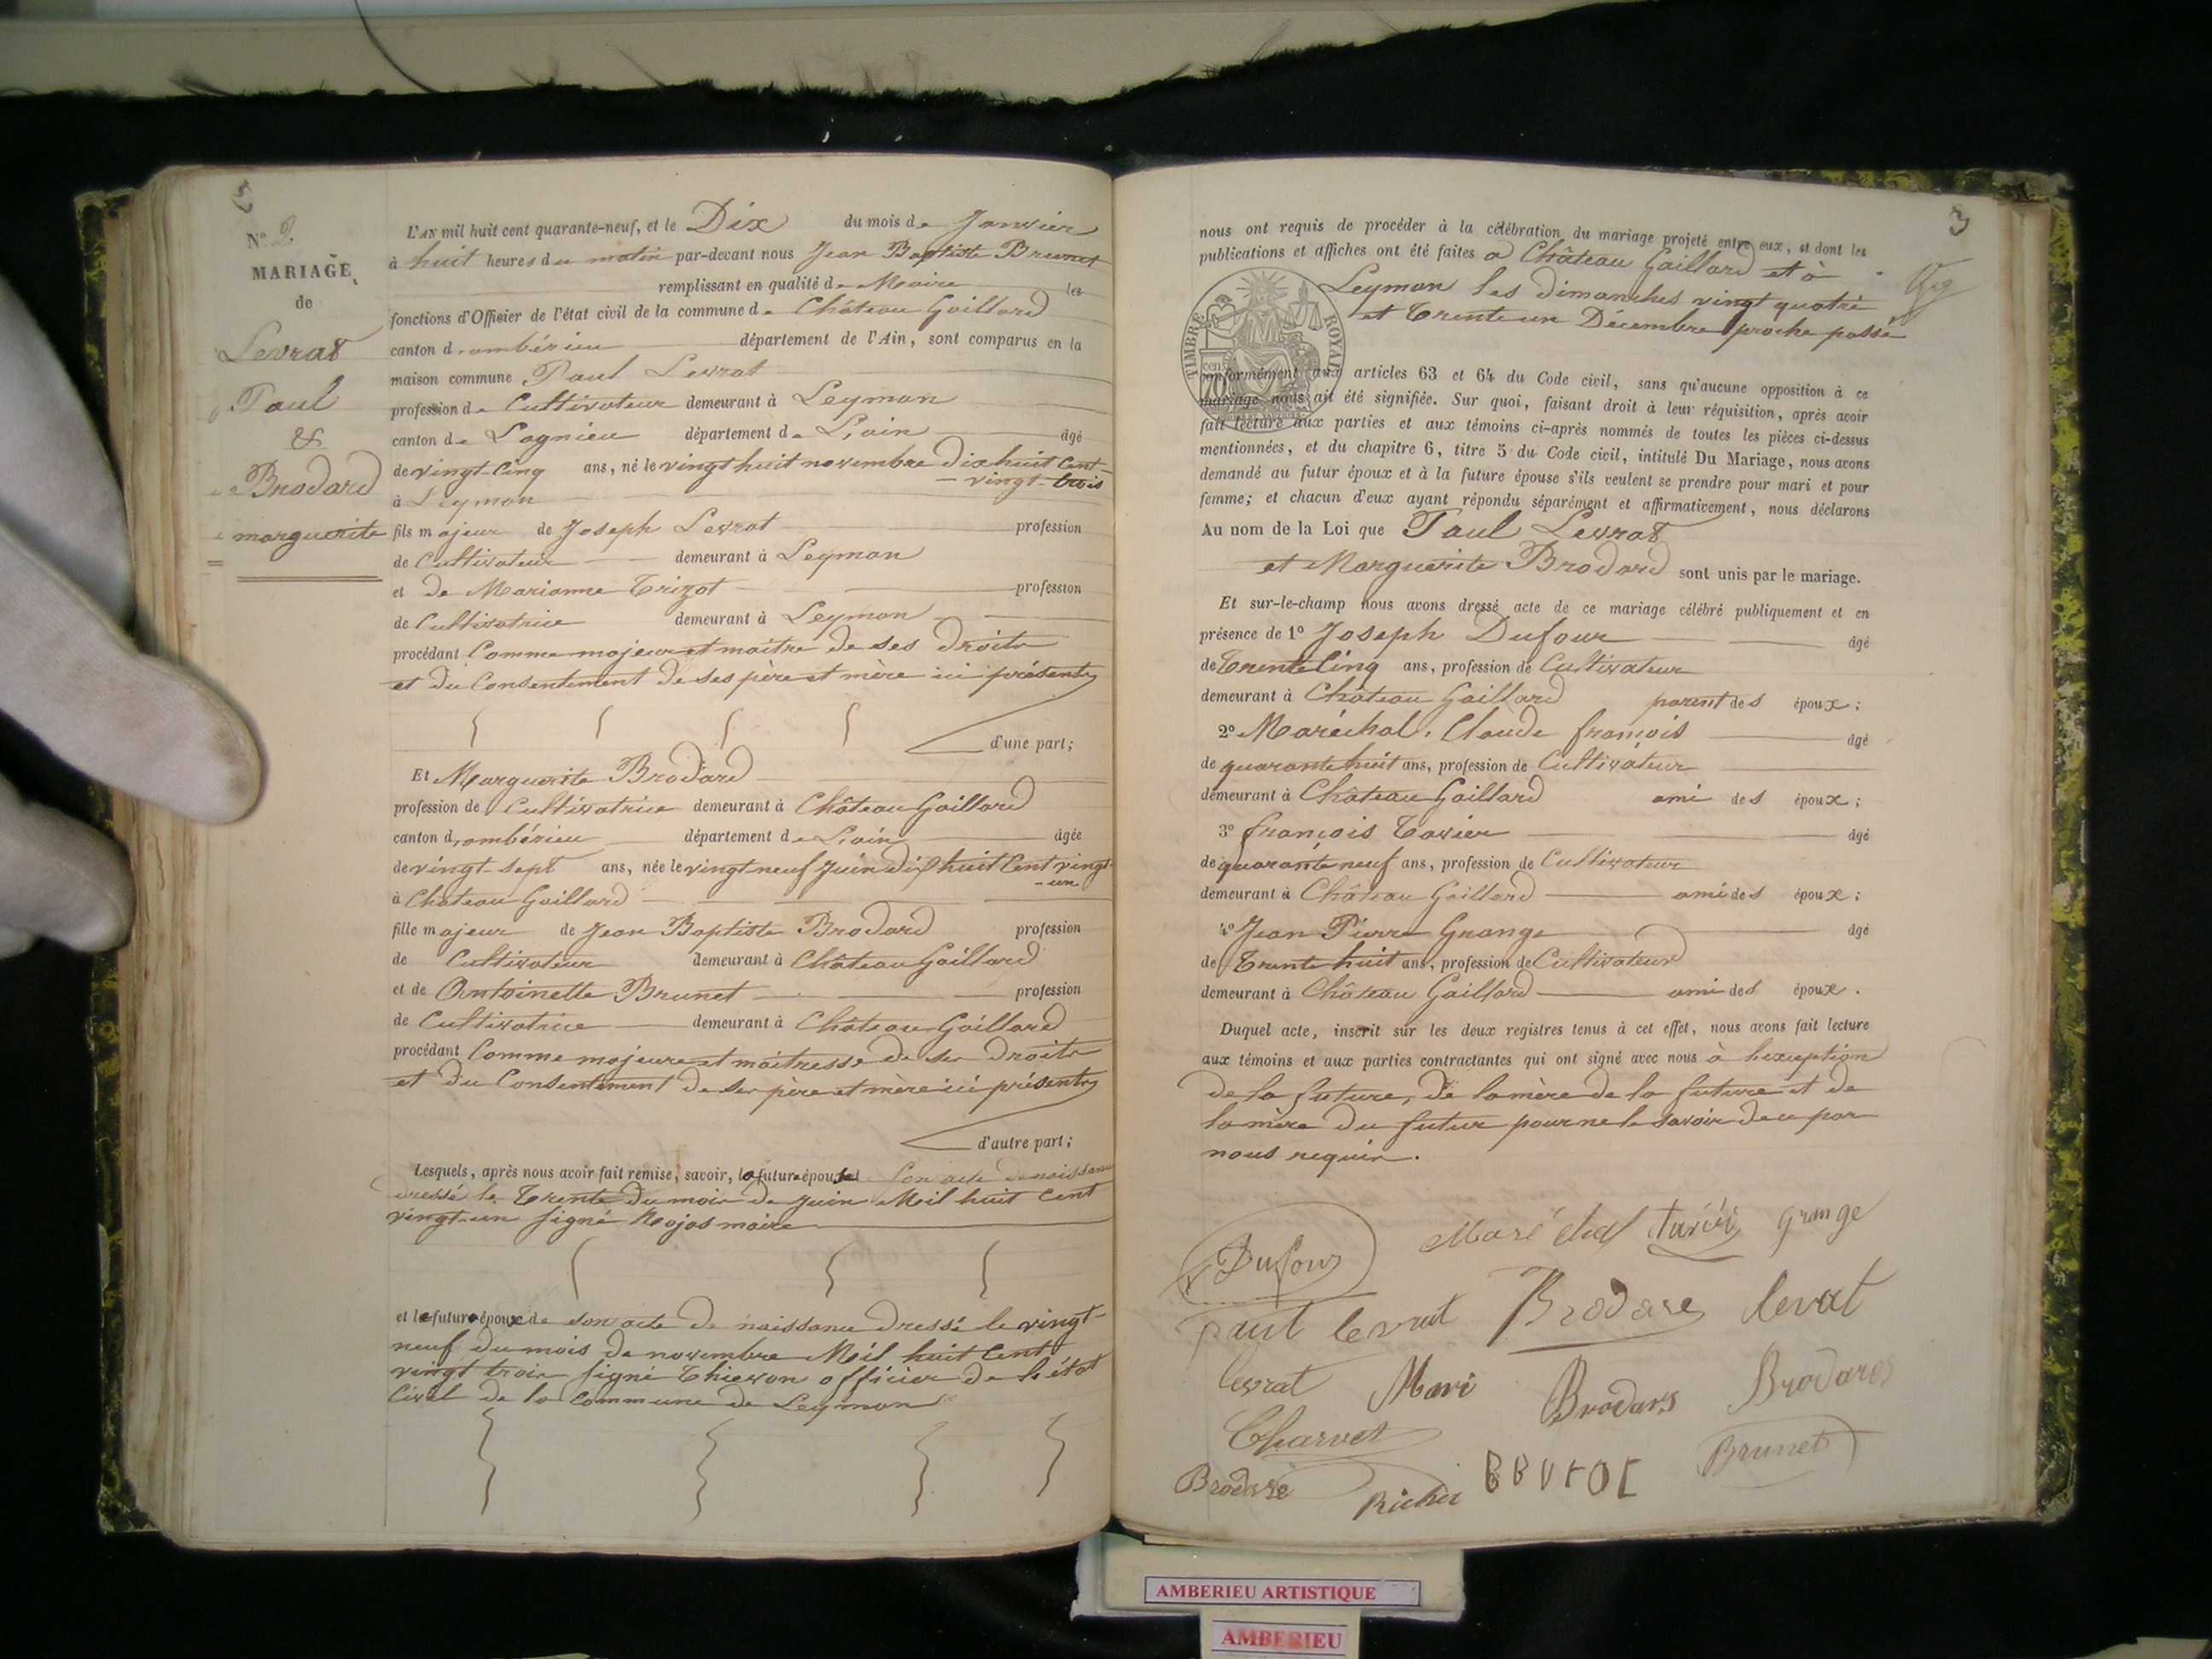 N° 2
MARIAGE
de
Levrat
Paul
&
Brodard
marguerite
L'AN mil huit cent quarante-neuf, et le Dix du mois de Janvier
à huit heures du matin par-devant nous Jean Baptiste Brunet
remplissant en qualité de Maire les
fonctions d'Officier de l'état civil de la commune de Château Gaillard
canton d'ambérieu département de l'Ain, sont comparus en la
maison commune Paul Levrat
profession de Cultivateur demeurant à Leyman
canton de Lagnieu département de L'ain âgé
de vingt-cinq ans, né le vingt huit novembre dix huit cent
- vingt-trois
à Leyman
fils majeur de Joseph Levrat profession
de Cultivateur demeurant à Leyman
et de Marianne Trizot profession
de Cultivatrice demeurant à Leyman
procédant Comme majeur et maitre de ses droits
et du Consentement de ses père et mère ici présents
d'une part;
Et Marguerite Brodard
profession de Cultivatrice demeurant à Château Gaillard
canton d'ambérieu département de L'ain âgée
de vingt-sept ans, née le vingt neuf Juin dix huit Cent vingt
- un
à Château Gaillard
fille majeur de Jean Baptiste Brodard profession
de Cultivateur demeurant à Château Gaillard
et de Antoinette Brunet profession
de Cultivatrice demeurant à Château Gaillard
procédant Comme majeure et maitresse de ses droits
et du Consentement de ses père et mère ici présents
d'autre part;
Lesquels, après nous avoir fait remise, savoir, la future épouse Son acte de naissance
dressé le Trente du mois de Juin Mil huit Cent
vingt-un signé maire
et le futur époux de son acte de naissance dressé le vingt-
neuf du mois de novembre Mil huit Cent
vingt trois signé Thievon officier de l'état
Civil de la Commune de Leyman
3
nous ont requis de procéder à la célébration du mariage projeté entre eux, et dont les
publications et affiches ont été faites à Château Gaillard et à
Leyman les dimanches vingt quatre
et Trente un Décembre proche passé
TIMBRE ROYAL
70 cen.
conformément aux articles 63 et 64 du Code civil, sans qu'aucune opposition à ce
mariage nous ait été signifiée. Sur quoi, faisant droit à leur réquisition, après avoir
fait lecture aux parties et aux témoins ci-après nommés de toutes les pièces ci-dessus
mentionnées, et du chapitre 6, titre 5 du Code civil, intitulé Du Mariage, nous avons
demandé au futur époux et à la future épouse s'ils veulent se prendre pour mari et pour
femme; et chacun d'eux ayant répondu séparément et affirmativement, nous déclarons
Au nom de la Loi que Paul Levrat
et Marguerite Brodard sont unis par le mariage.
Et sur-le-champ nous avons dressé acte de ce mariage célébré publiquement et en
présence de 1° Joseph Dufour âgé
de Trente Cinq ans, profession de Cultivateur
demeurant à Château Gaillard parent des époux;
2° Maréchal, Claude françois âgé
de quarante huit ans, profession de Cultivateur
demeurant à Château Gaillard ami des époux;
3° françois Tavier âgé
de quarante neuf ans, profession de Cultivateur
demeurant à Château Gaillard ami des époux;
4° Jean Pierre Grange âgé
de Trente huit ans, profession de Cultivateur
demeurant à Château Gaillard ami des époux.
Duquel acte, inscrit sur les deux registres tenus à cet effet, nous avons fait lecture
aux témoins et aux parties contractantes qui ont signé avec nous à l'exception
de la future, de la mère de la future et de
la mère du futur pour ne le savoir de ce par
nous requis.
Dufour Maréchal Grange
paul levrat Brodard levrat
levrat Brodard Brodard
Charvet
Brodard Richer Brunet
AMBERIEU ARTISTIQUE
AMBERIEU